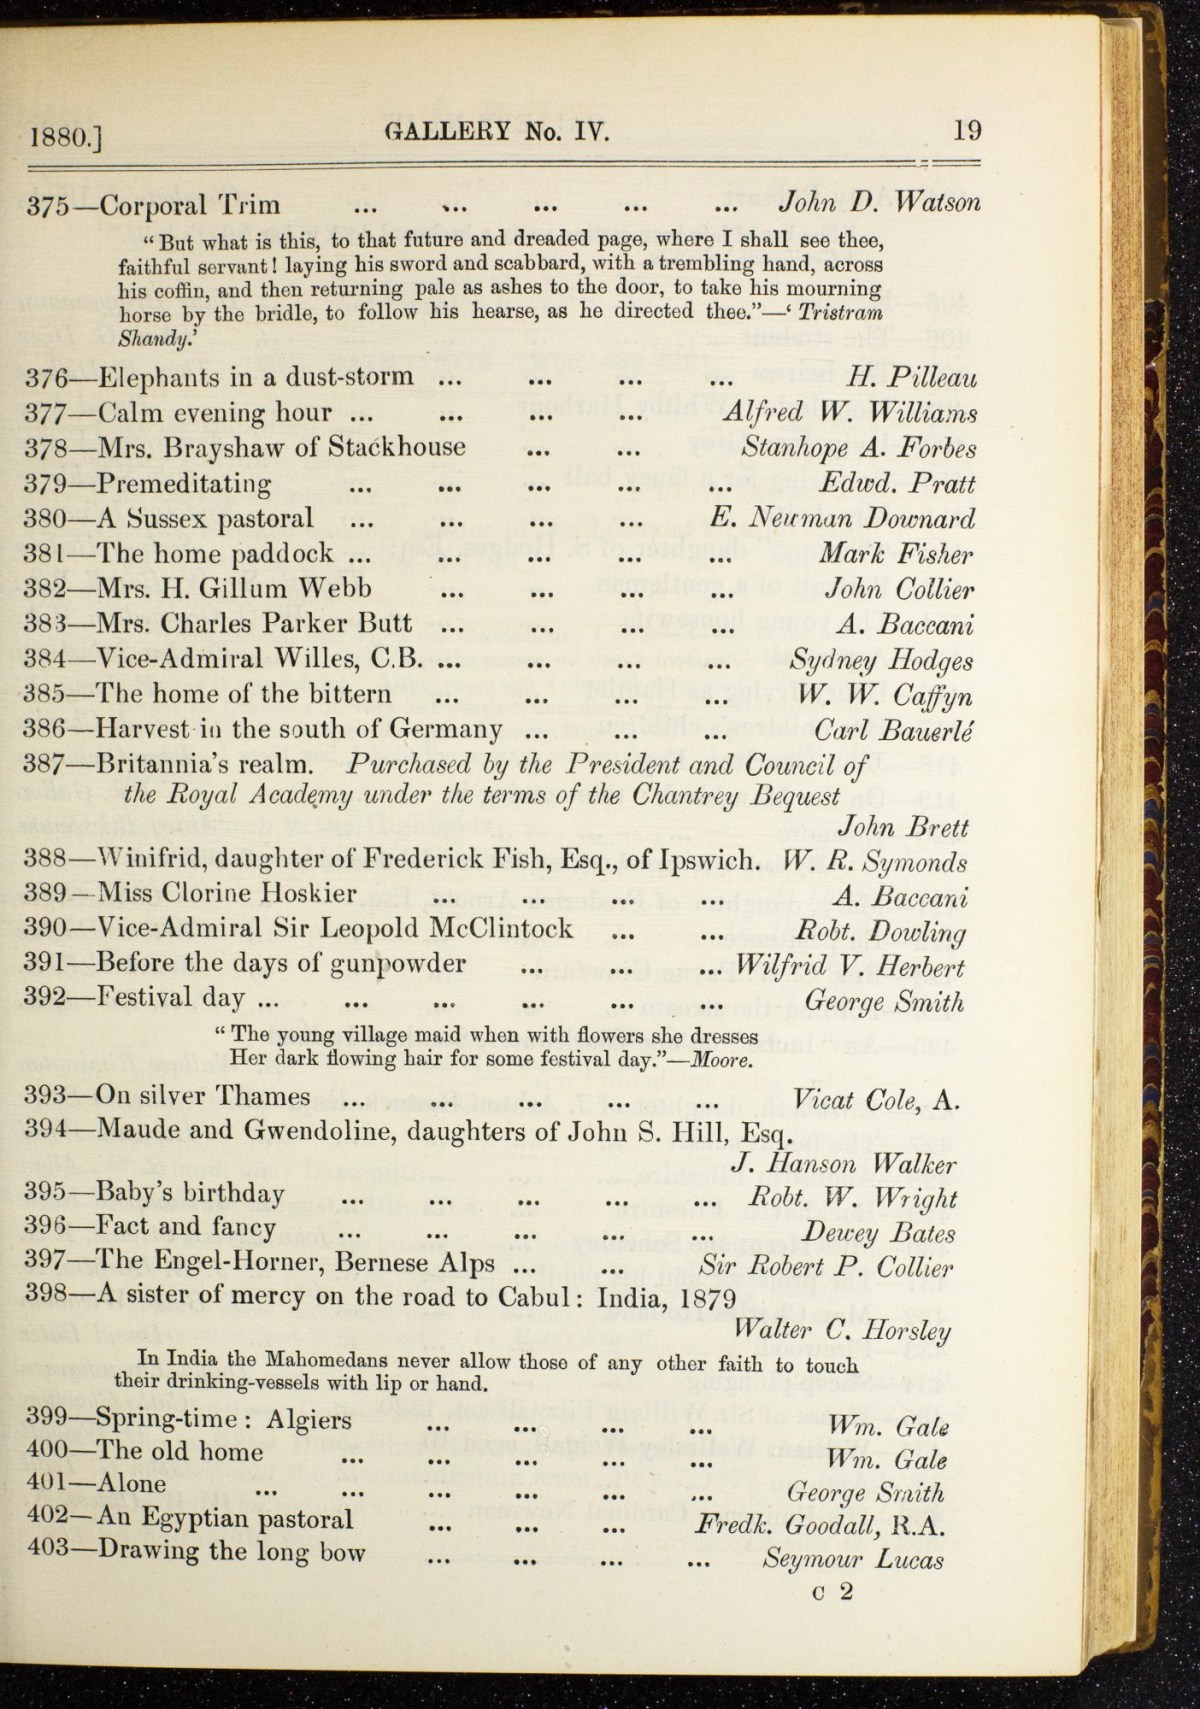 1880.] GALLERY No. IV. 19
375—Corporal Trim ... ... ... ... ... John D. Watson
"But what is this, to that future and dreaded page, where I shall see thee,
faithful servant! laying his sword and scabbard, with a trembling hand, across
his coffin, and then returning pale as ashes to the door, to take his mourning
horse by the bridle, to follow his hearse, as he directed thee."—'Tristram
Shandy.'
376—Elephants in a dust-storm ... ... ... ... H. Pilleau
377—Calm evening hour ... ... ... ... Alfred W. Williams
378—Mrs. Brayshaw of Stackhouse ... ... Stanhope A. Forbes
379—Premeditating ... ... ... ... ... Edwd. Pratt
380—A Sussex pastoral ... ... ... ... E. Newman Downard
381—The home paddock ... ... ... ... ... Mark Fisher
382—Mrs. H. Gillum Webb ... ... ... ... John Collier
383—Mrs. Charles Parker Butt ... ... ... ... A. Baccani
384—Vice-Admiral Willes, C.B. ... ... ... ... Sydney Hodges
385—The home of the bittern ... ... ... ... W. W. Caffyn
386—Harvest in the south of Germany ... ... ... Carl Bauerlé
387—Britannia's realm. Purchased by the President and Council of
the Royal Academy under the terms of the Chantrey Bequest
John Brett
388—Winifrid, daughter of Frederick Fish, Esq., of Ipswich. W. R. Symonds
389—Miss Clorine Hoskier ... ... ... ... A. Baccani
390—Vice-Admiral Sir Leopold McClintock ... ... Robt. Dowling
391—Before the days of gunpowder ... ... ... Wilfrid V. Herbert
392—Festival day ... ... ... ... ... ... George Smith
"The young village maid when with flowers she dresses
Her dark flowing hair for some festival day."—Moore.
393—On silver Thames ... ... ... ... ... Vicat Cole, A.
394—Maude and Gwendoline, daughters of John S. Hill, Esq.
J. Hanson Walker
395—Baby's birthday ... ... ... ... ... Robt. W. Wright
396—Fact and fancy ... ... ... ... ... Dewey Bates
397—The Engel-Horner, Bernese Alps ... ... Sir Robert P. Collier
398—A sister of mercy on the road to Cabul: India, 1879
Walter C. Horsley
In India the Mahomedans never allow those of any other faith to touch
their drinking-vessels with lip or hand.
399—Spring-time: Algiers ... ... ... ... Wm. Gale
400—The old home ... ... ... ... ... Wm. Gale
401—Alone ... ... ... ... ... ... George Smith
402—An Egyptian pastoral ... ... ... Fredk. Goodall, R.A.
403—Drawing the long bow ... ... ... ... Seymour Lucas
C 2